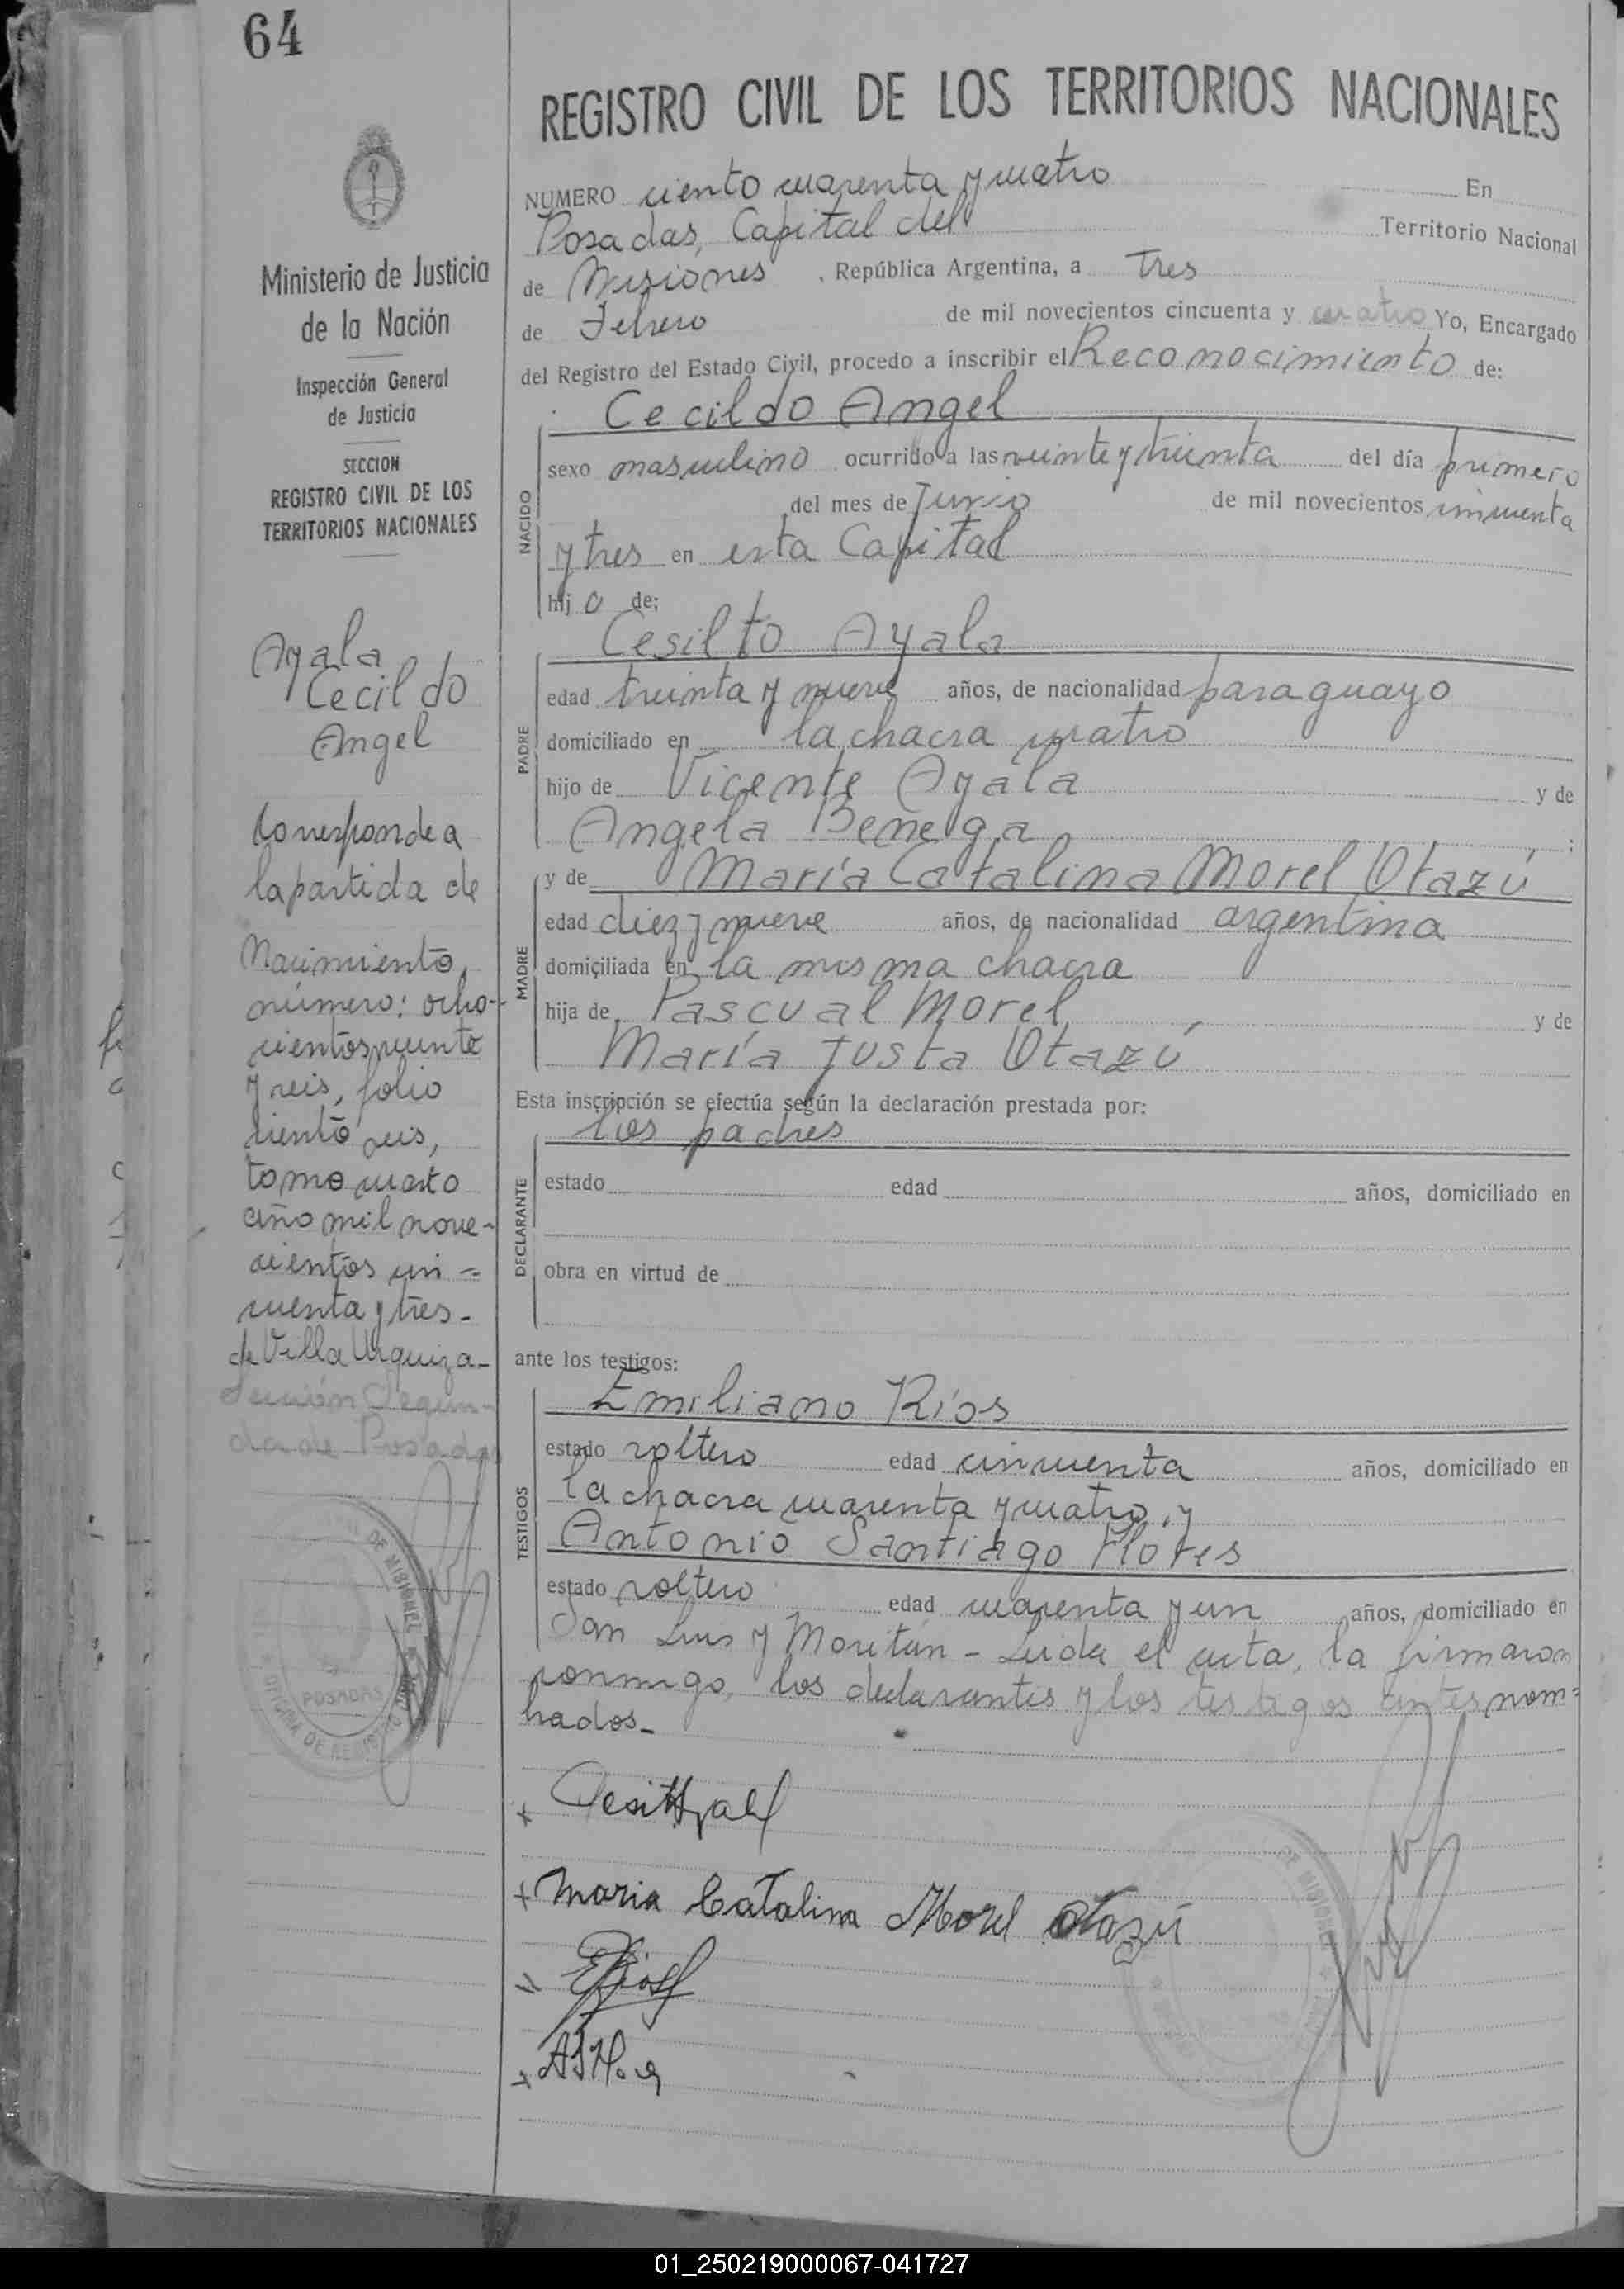 64
REGISTRO CIVIL DE LOS TERRITORIOS NACIONALES
NUMERO ciento cuarenta y cuatro En
Posadas, Capital del Territorio Nacional
de Misiones , República Argentina, a Tres
de Febrero de mil novecientos cincuenta y cuatro Yo, Encargado
del Registro del Estado Civil, procedo a inscribir el Reconocimiento de:
Cecildo Angel
NACIDO
sexo masculino ocurrido a las veinte y treinta del día primero
del mes de Junio de mil novecientos cincuenta
y tres en esta Capital
hijo de:
Cesilto Ayala
PADRE
edad treinta y nueve años, de nacionalidad paraguayo
domiciliado en la chacra cuatro
hijo de Vicente Ayala y de
Angela Benega ;
y de María Catalina Morel Otazú
MADRE
edad diez y nueve años, de nacionalidad argentina
domiciliada en la misma chacra
hija de Pascual Morel y de
María Justa Otazú
Esta inscripción se efectúa según la declaración prestada por:
los padres
DECLARANTE
estado edad años, domiciliado en
obra en virtud de
ante los testigos:
Emiliano Ríos
TESTIGOS
estado soltero edad cincuenta años, domiciliado en
la chacra cuarenta y cuatro, y
Antonio Santiago Flores
estado soltero edad cuarenta y un años, domiciliado en
San Luis y Moritán - Leida el acta, la firmaron
conmigo, los declarantes y los testigos antes nom=
brados-
Maria Catalina Morel Otazú
ERios
Ministerio de Justicia
de la Nación
Inspección General
de Justicia
SECCION
REGISTRO CIVIL DE LOS
TERRITORIOS NACIONALES
Ayala
Cecildo
Angel
Corresponde a
la partida de
Nacimiento,
número: ocho-
cientos veinte
y seis, folio
ciento seis,
tomo cuarto
año mil nove-
cientos cin-
cuenta y tres-
de Villa Urquiza-
Sección Segun-
da de Posadas
DE MISIONES
POSADAS
OFICINA DE REGISTRO
DE MISIONES
01_250219000067-041727